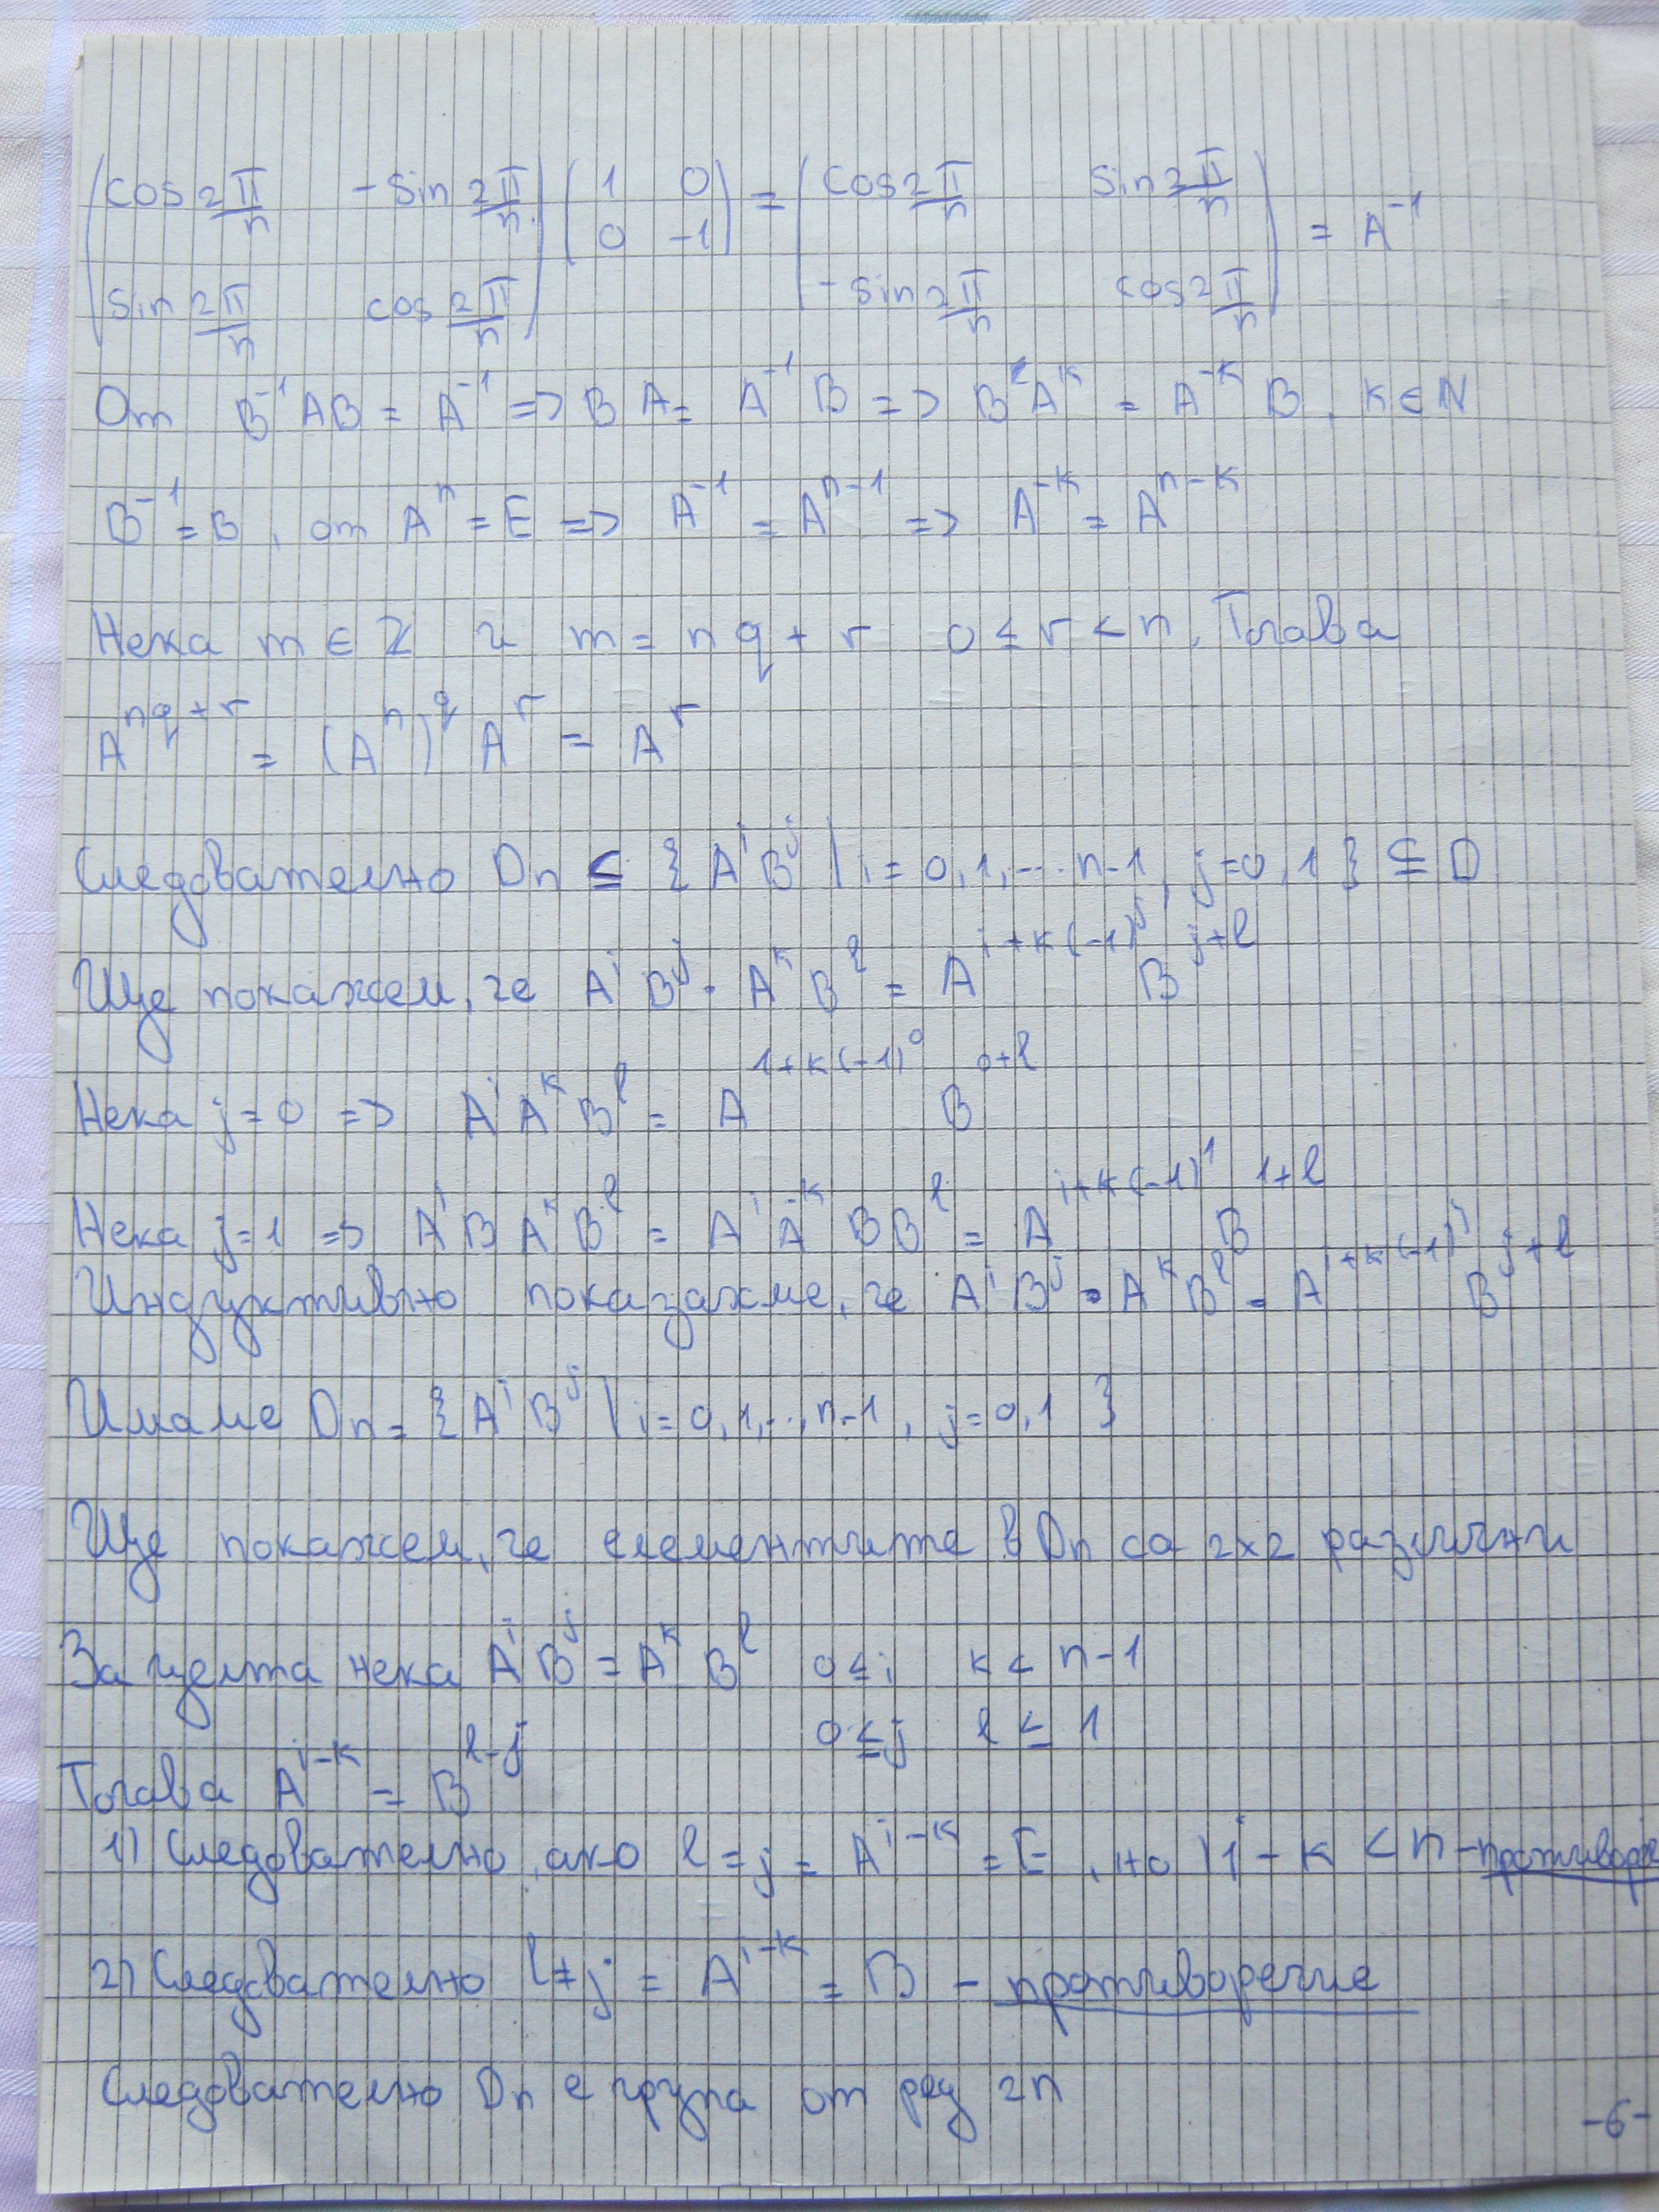 (cos 2π/n -sin 2π/n) (1 0) = (cos 2π/n sin 2π/n) = A⁻¹
(sin 2π/n cos 2π/n) (0 -1) (-sin 2π/n cos 2π/n)
От B⁻¹AB = A⁻¹ => BA = A⁻¹B => B A^k = A^{-k} B, k ∈ N
B⁻¹ = B, от A^n = E => A⁻¹ = A^{n-1} => A^{-k} = A^{n-k}
Нека m ∈ Z и m = nq + r 0 ≤ r < n. Тогава
A^{nq+r} = (A^n)^q A^r = A^r
Следователно Dn ⊆ {A^i B^j | i = 0,1,...n-1, j=0,1} ⊆ D
Ще покажем, че A^i B^j . A^k B^l = A^{i+k(-1)^j} B^{j+l}
Нека j=0 => A^i A^k B^l = A^{1+k(-1)^0} B^{0+l}
Нека j=1 => A^i B A^k B^l = A^i A^{-k} B B^l = A^{i+k(-1)^1} B^{1+l}
Индуктивно показахме, че A^i B^j . A^k B^l = A^{i+k(-1)^j} B^{j+l}
Имаме Dn = {A^i B^j | i=0,1,..,n-1, j=0,1 }
Ще покажем, че елементите в Dn са 2x2 различни
За целта нека A^i B^j = A^k B^l 0 ≤ i k < n-1
0 ≤ j l ≤ 1
Тогава A^{i-k} = B^{l-j}
1) Следователно, ако l = j = A^{i-k} = E, но |i - k < n -
2) Следователно l ≠ j = A^{i-k} = B - противоречие
Следователно Dn е група от ред 2n
-6-